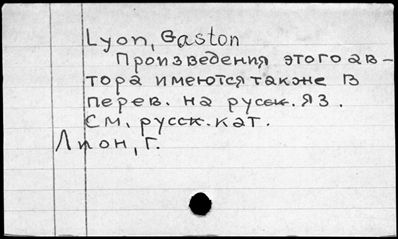 Lyon, Gaston
Произведения этого ав-
тора имеются также в
перев. на русск. яз.
См. русск. кат.
Лион, Г.